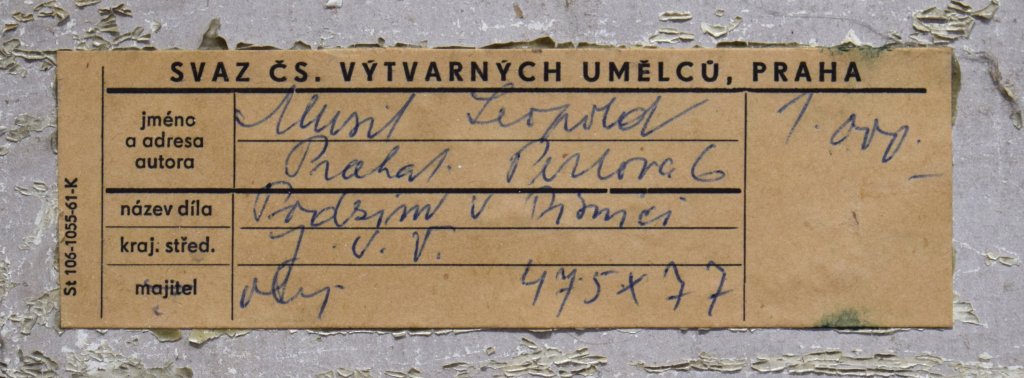 SVAZ ČS. VÝTVARNÝCH UMĚLCŮ, PRAHA
jméno a adresa autora
Musil Leopold
Praha 1. Perlová 6
1.000.-
název díla
Podzim v
kraj. střed.
J. S. V.
majitel
olej 475 x 77
St 106-1055-61-K